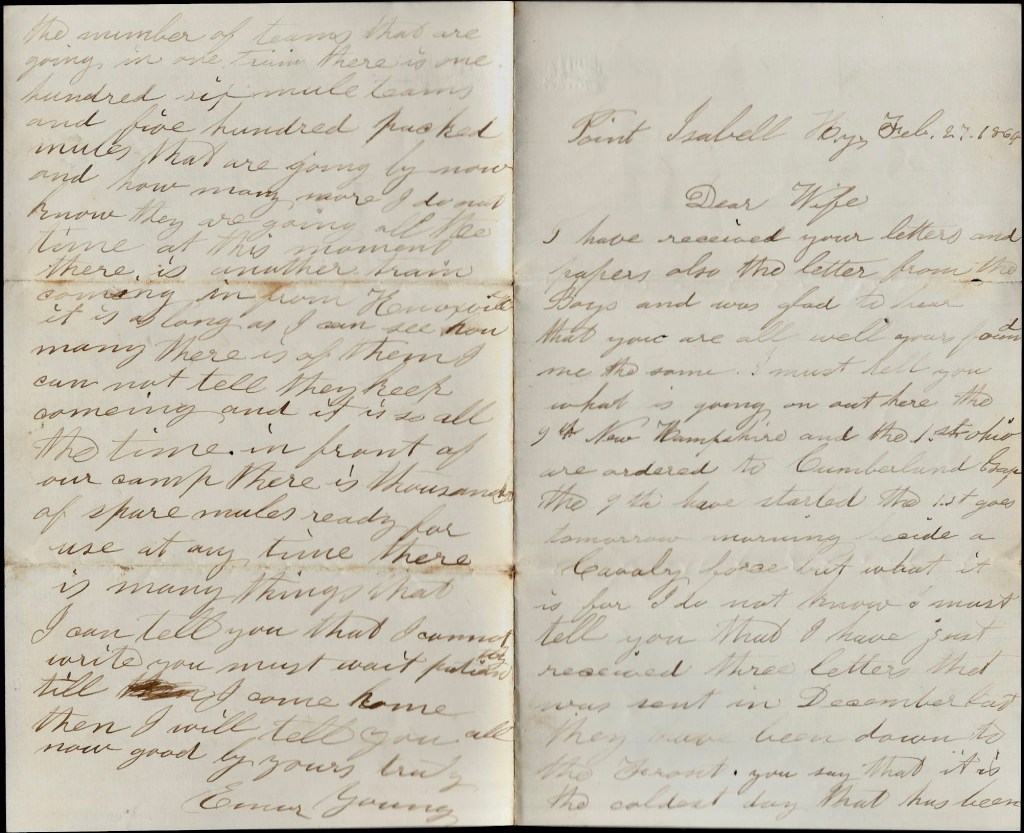 Point Isabell Ky, Feb. 27. 1864
Dear Wife
I have received your letters and
papers also the letter from the
Boys and was glad to hear
that you are all well yours found
me the same. I must tell you
what is going on out here the
9th New Hampshire and the 1.st ohio
are ordered to Cumberland Gap
the 9th have started the 1.st goes
tomorrow morning beside a
Cavalry force but what it
is for I do not know I must
tell you that I have just
received three letters that
was sent in December but
they have been down to
the Front. you say that it is
the coldest day that has been
the number of teams that are
going in one train there is one
hundred six mule teams
and five hundred packed
mules that are going by now
and how many more I do not
know they are going all the
time at this moment
there is another train
comeing in from Knoxville
it is as long as I can see how
many there is of them I
can not tell they keep
comeing and it is so all
the time. in front of
our camp there is thousands
of spare mules ready for
use at any time there
is many things that
I can tell you that I cannot
write you must wait patiently
till I come home
then I will tell you all
now good by yours truly
Young